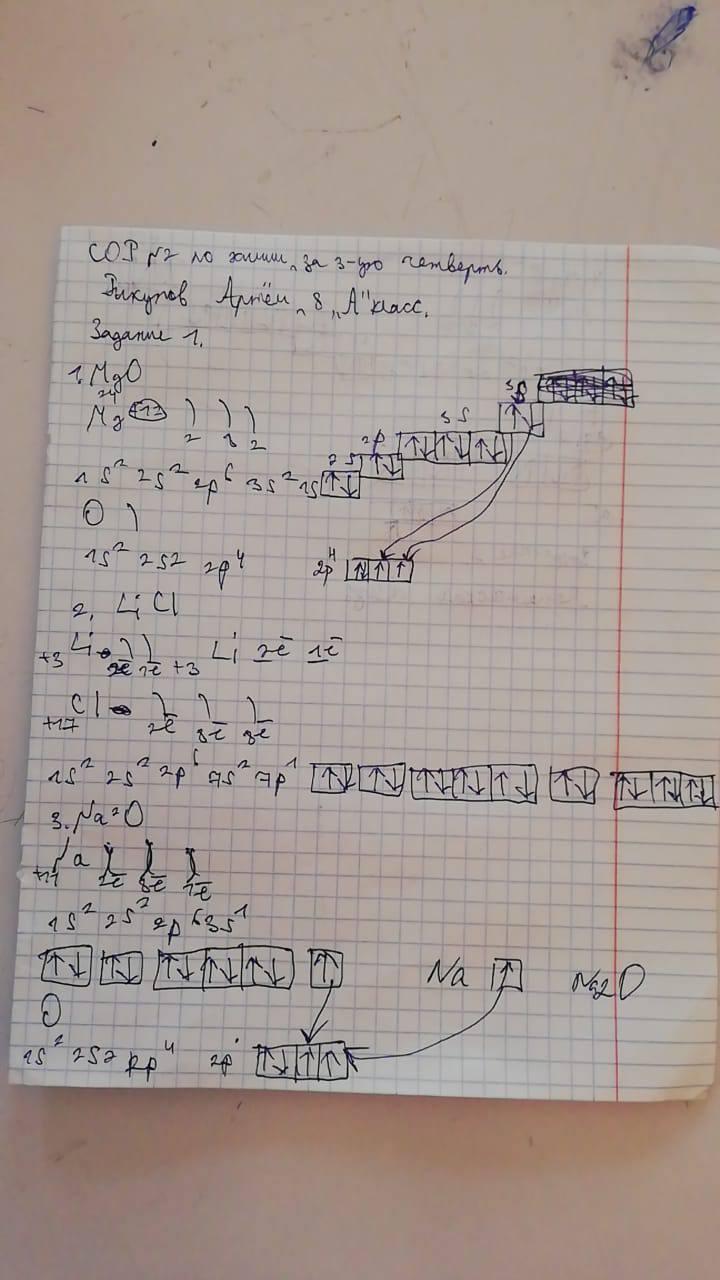 СОР №2 по химии „за 3-ую четверть.
Артём „8 „А" класс.
Задание 1.
1. MgO
24
Mg +12 ) ) )
2 8 2
1s² 2s² 2p⁶ 3s² 1s 2s 2p 3s
O )
1s² 2s2 2p⁴ 2p⁴
2. LiCl
+3 Li ) ) +3 Li 2ē 1ē
2ē 1ē
+17 Cl ) ) )
2ē 8ē 8ē
1s² 2s² 2p⁶ 7s² 7p¹
3. Na²O
+11 Na ) ) )
1ē 8ē 1ē
1s² 2s² 2p⁶ 3s¹
Na Na2O
O
1s² 2s2 2p⁴ 2p